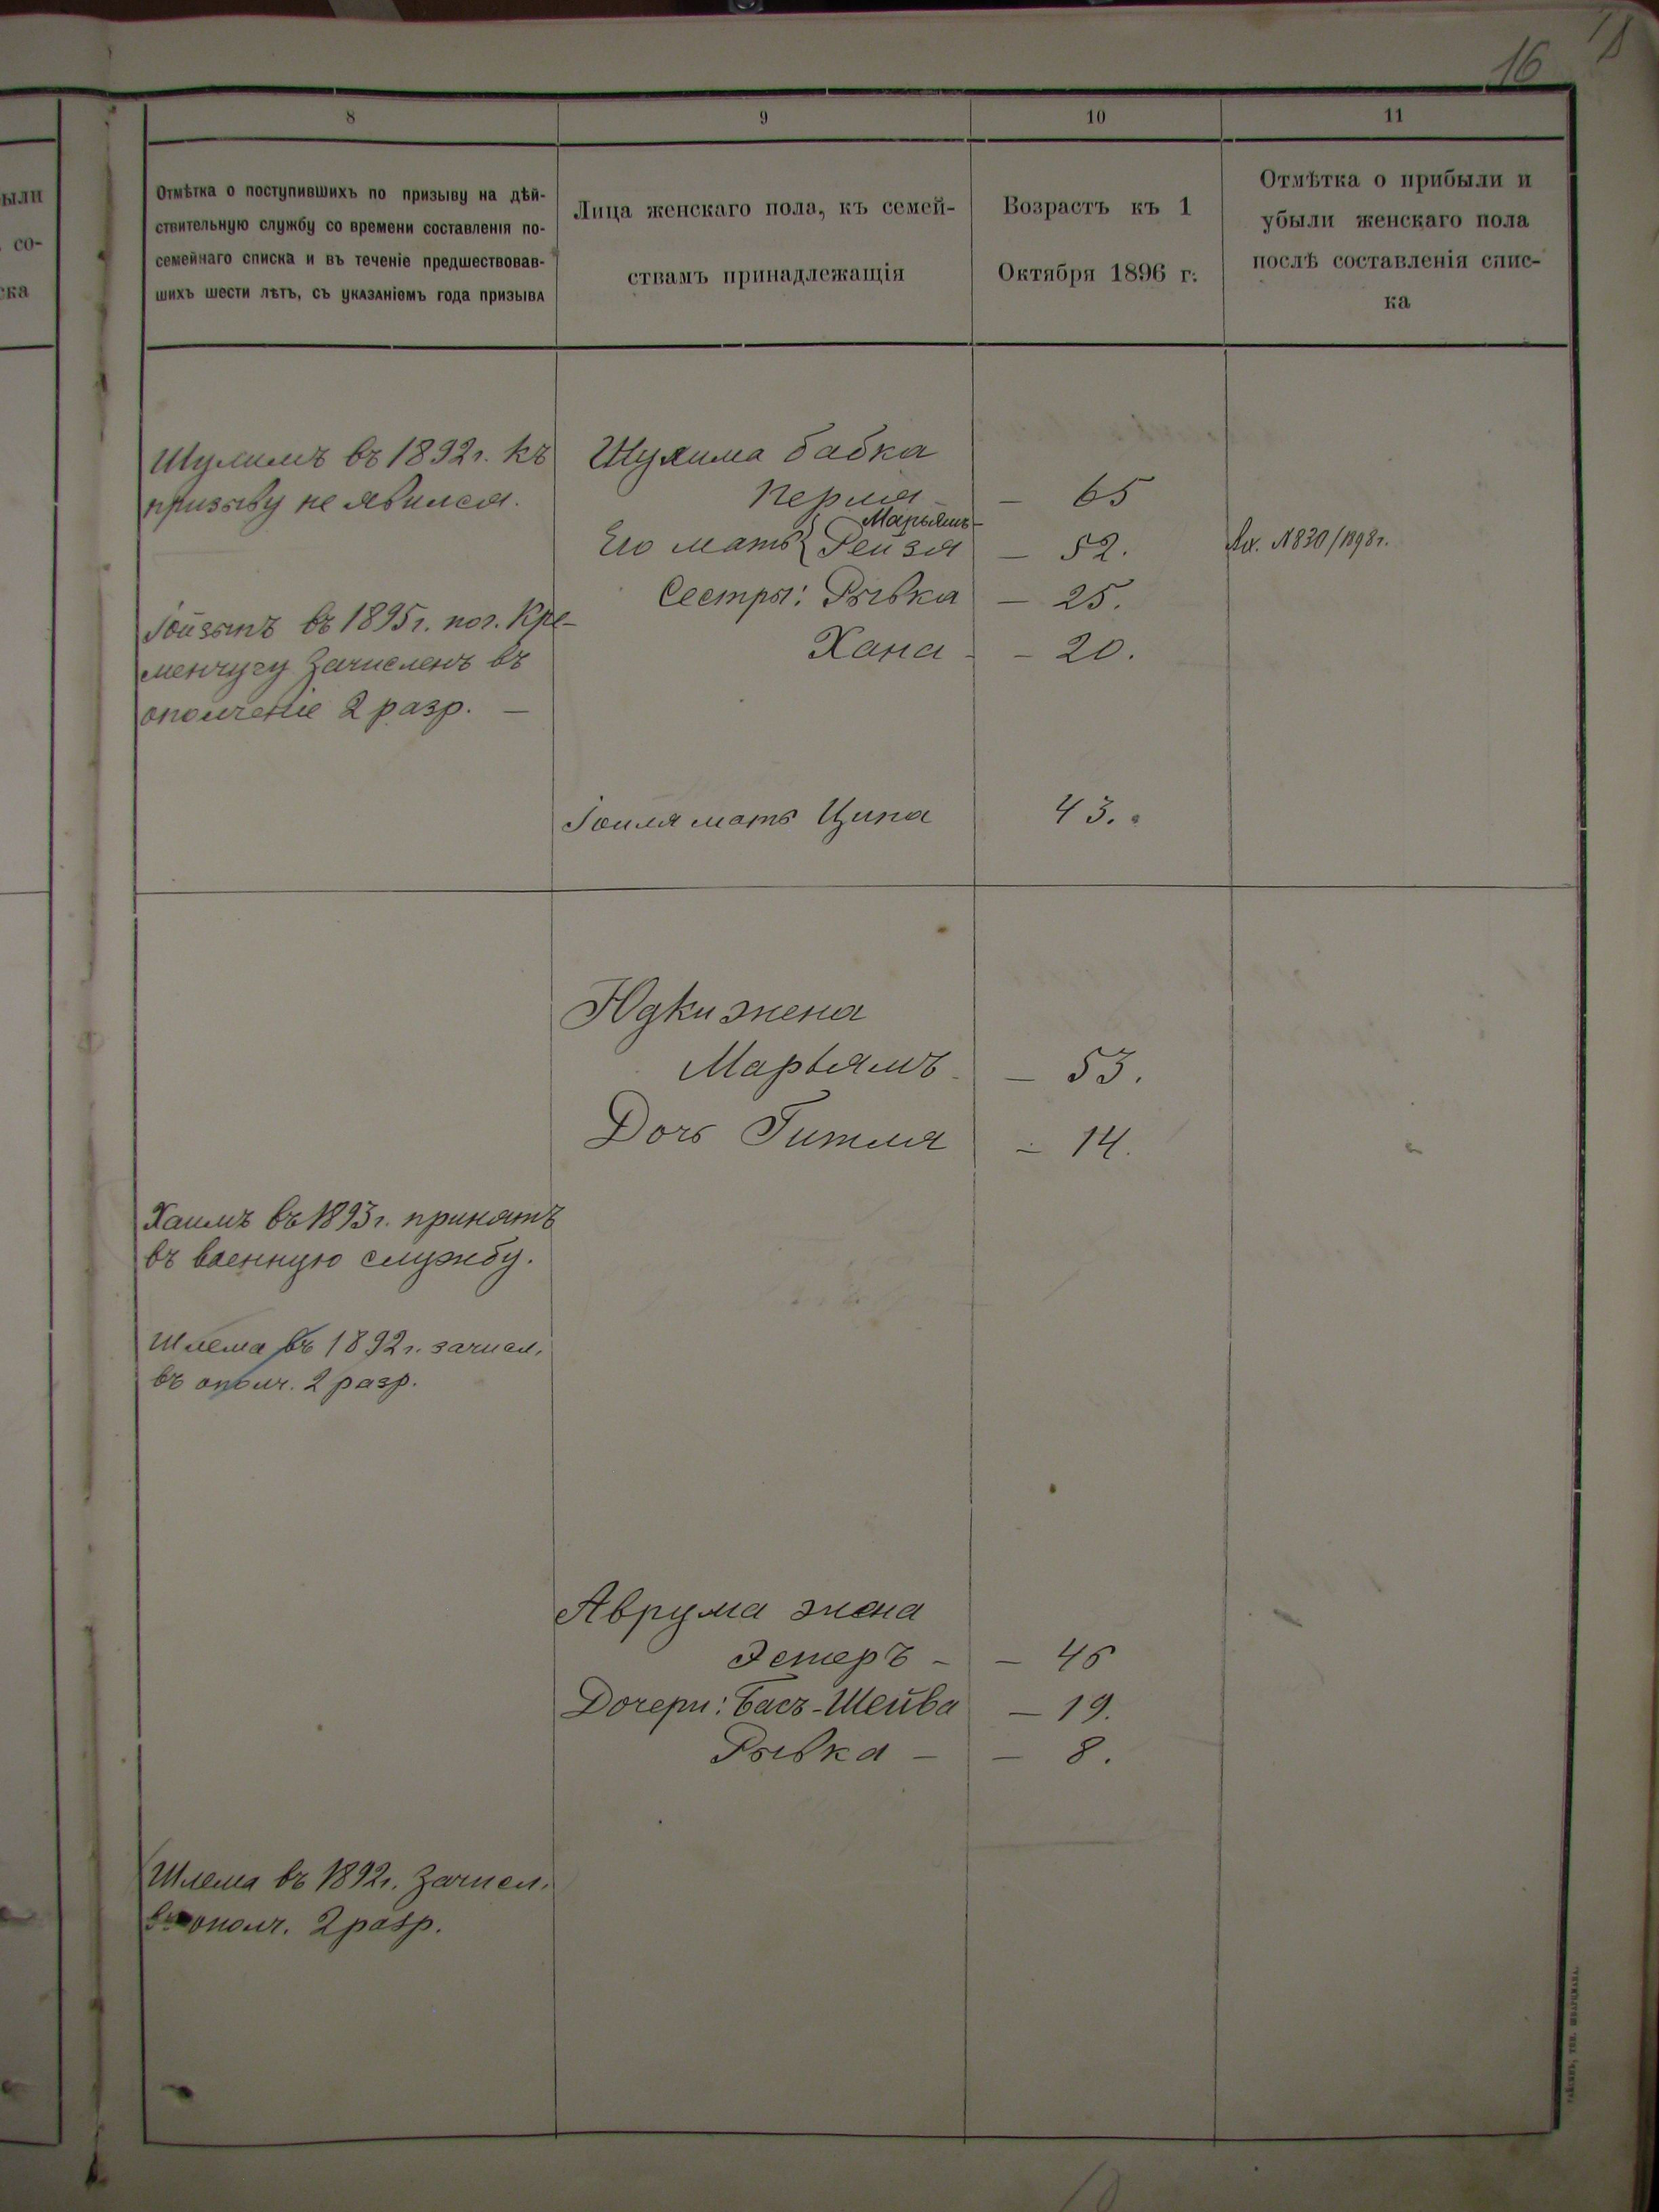 16
18
8
9
10
11
ыли
со-
ска
Отмѣтка о поступившихъ по призыву на дѣй-
ствительную службу со времени составленія по-
семейнаго списка и въ теченіе предшествовав-
шихъ шести лѣтъ, съ указаніемъ года призыва
Лица женскаго пола, къ семей-
ствамъ принадлежащія
Возрастъ къ 1
Октября 1896 г.
Отмѣтка о прибыли и
убыли женскаго пола
послѣ составленія спис-
ка
Шулимъ въ 1892 г. къ
призыву не явился.
Іойзыпъ въ 1895 г. по г. Кре-
менчугу зачисленъ въ
ополченіе 2 разр. —
Шулима бабка
Перля — 65
Марьямъ —
Его мать { Рейзя — 52.
№ 830/1898 г.
Сестры: Рывка — 25.
Хана — 20.
Іоиля мать Ципа 43.
Юдки жена
Марьямъ — 53.
Дочь Гитля — 14.
Хаимъ въ 1893 г. принятъ
въ военную службу.
Шлема въ 1892 г. зачисл.
въ ополч. 2 разр.
Аврума жена
Эстеръ — 45
Дочери: Бася-Шейва — 19.
Рывка — 8.
Шлема въ 1892 г. зачисл.
въ ополч. 2 разр.